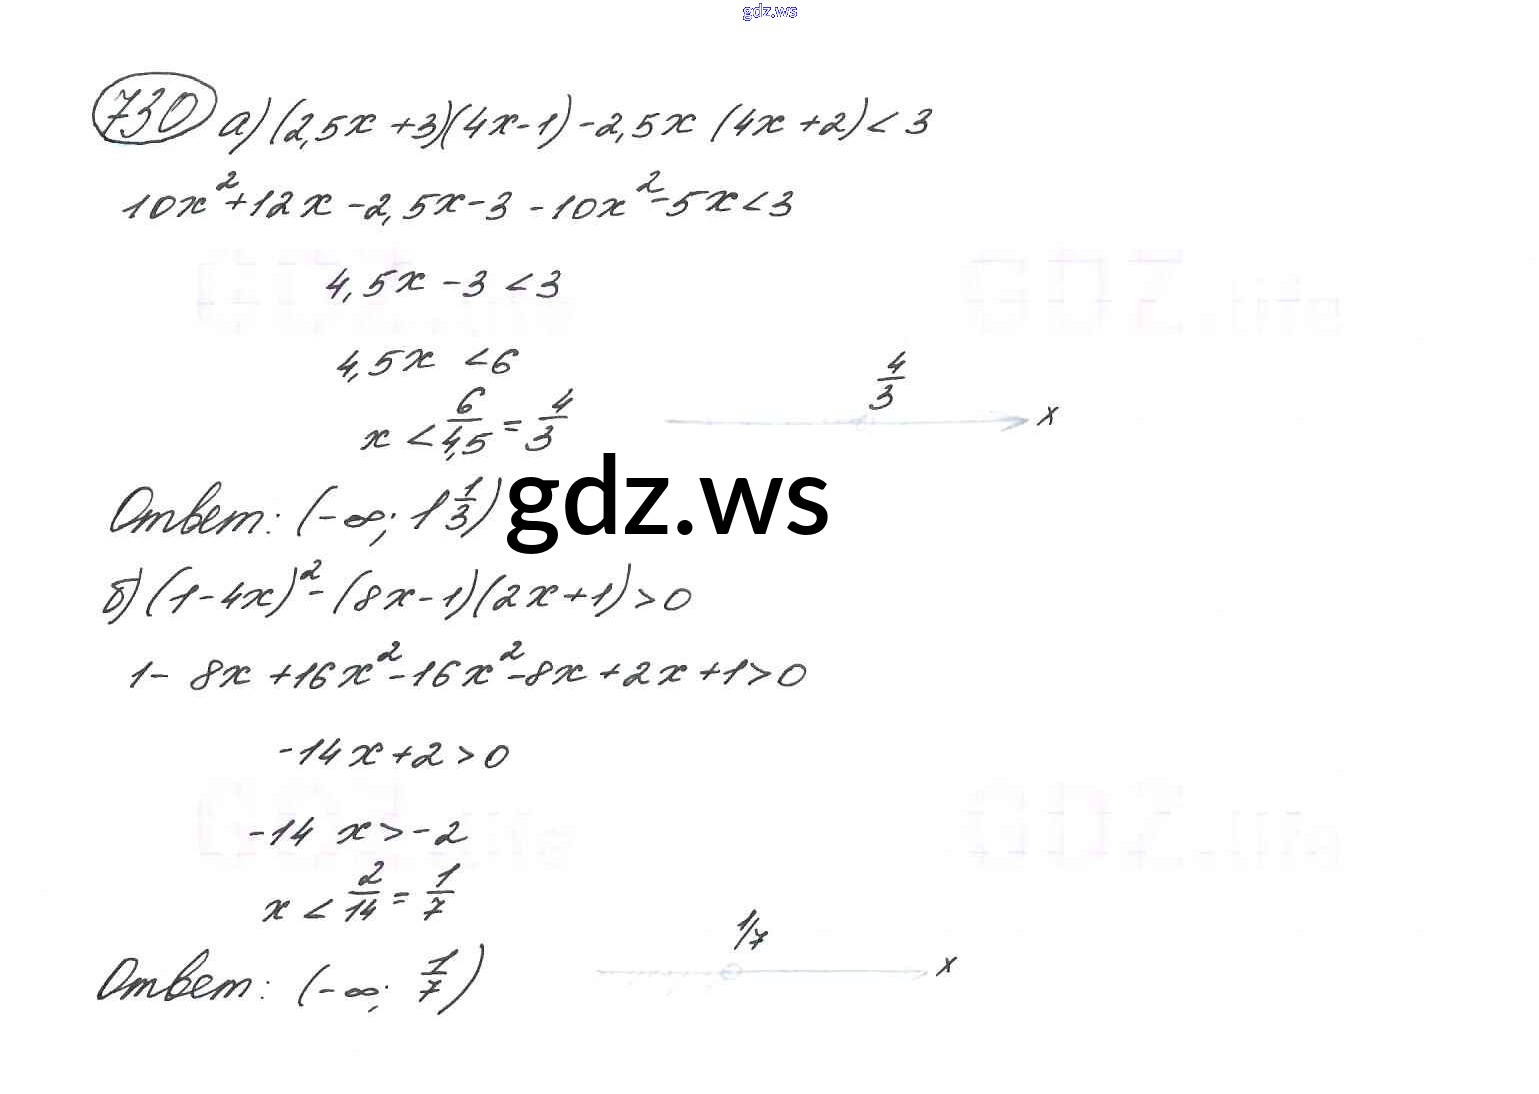 gdz.ws
730 а) (2,5x + 3)(4x - 1) - 2,5x (4x + 2) < 3
10x² + 12x - 2,5x - 3 - 10x² - 5x < 3
4,5x - 3 < 3
4,5x < 6
x < 6/4,5 = 4/3
4/3 x
Ответ: (-∞; 1 1/3)
gdz.ws
б) (1 - 4x)² - (8x - 1)(2x + 1) > 0
1 - 8x + 16x² - 16x² - 8x + 2x + 1 > 0
-14x + 2 > 0
-14 x > -2
x < 2/14 = 1/7
1/7 x
Ответ: (-∞; 1/7)
GDZ.life
GDZ.life
GDZ.life
GDZ.life